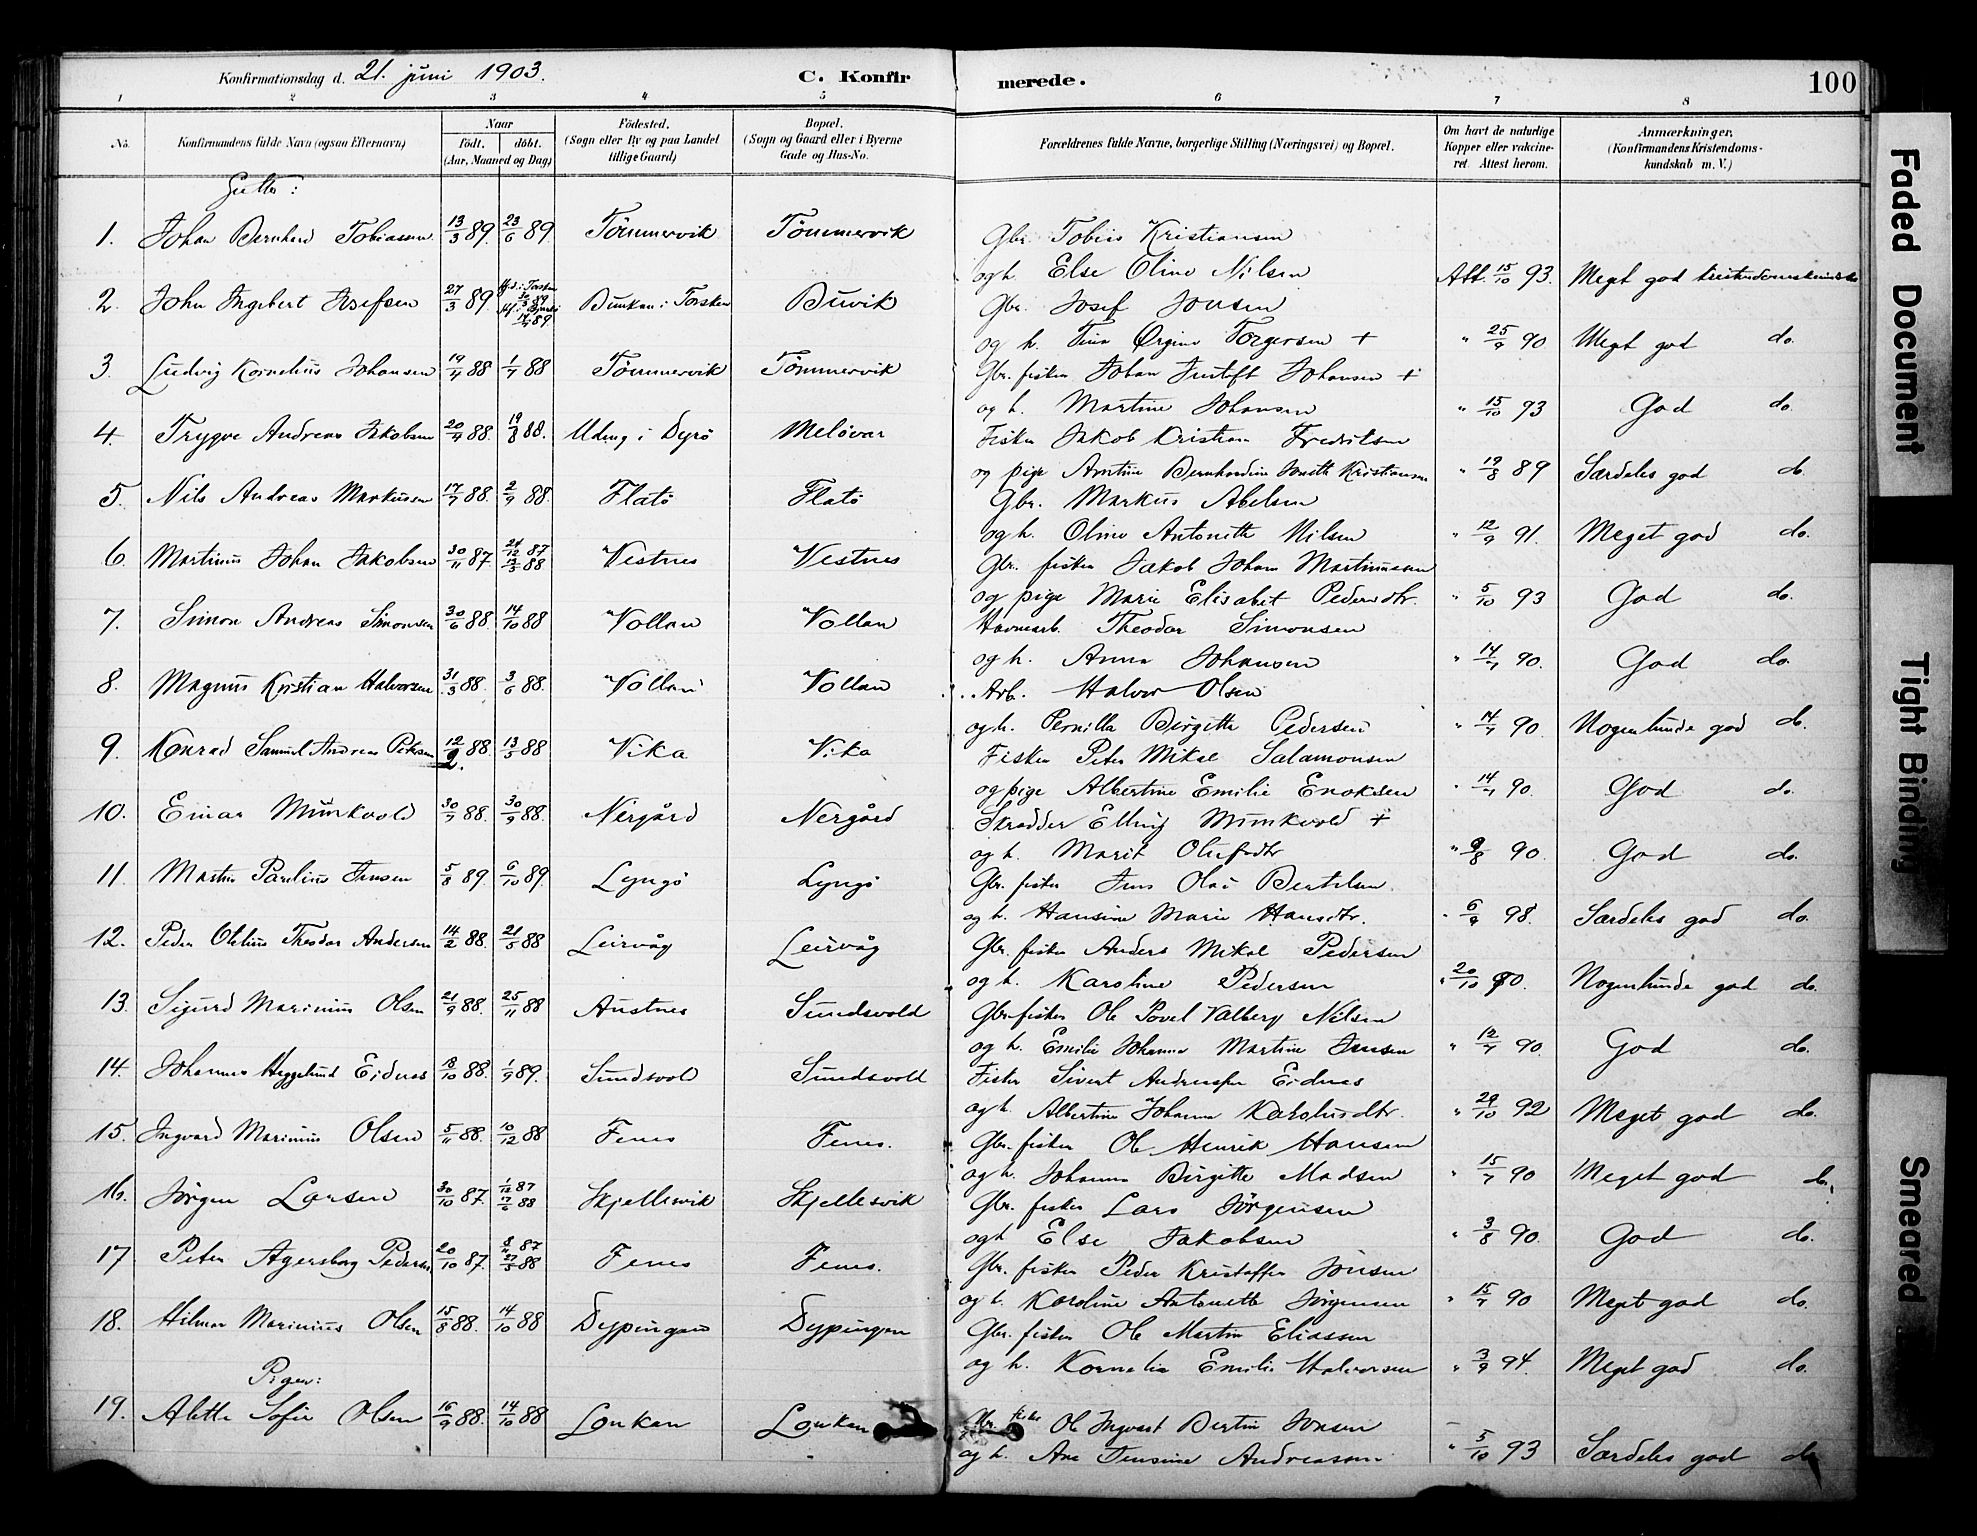 Konfirmationsdag d. 21. juni 1903. C. Konfirmerede. 100
1 2 3 4 5 6 7 8
No. Konfirmandens fulde Navn (ogsaa Efternavn) Naar Födt. döbt. (Aar, Maaned og Dag) Födested. (Sogn eller By og paa Landet tillige Gaard) Bopæl. (Sogn og Gaard eller i Byerne Gade og Hus-No. Forældrenes fulde Navne, borgerlige Stilling (Næringsvei) og Bopæl. Om havt de naturlige Kopper eller vakcineret. Attest herom. Anmærkninger. (Konfirmandens Kristendomskundskab m. V.)
Gutter:
1. Johan Bernhard Tobiassen 13/3 89. 23/6 89. Tömmervik Tömmervik Gbr. Tobias Kristiansen
og h. Else Oline Nilsen Att. 15/10 93. Meget god kristendomskundsk.
2. John Ingebert Josefsen 27/3 89. Bunkan i Torsken Buvik Gbr. Josef Jonsen
og h. Tina Ørgine Torgersen + " 25/9 90 Meget god do.
3. Ludvig Kornelius Johansen 19/4 88 1/7 88 Tömmervik Tömmervik Gbr. fisker Johan Justoft Johansen +
og h. Martine Johansen " 15/10 93 God do.
4. Trygve Andreas Jakobsen 20/4 88. 19/8 88. i Dyrö Melövær Fisker Jakob Kristian Fredriksen
og pige Amtine Bernhardine Kristiansen " 19/8 89 Særdeles god do.
5. Nils Andreas Markussen 17/7 88. 2/9 88. Flatö Flatö Gbr. Markus Abelsen
og h. Oline Antonette Nilsen " 12/9 91. Meget god do.
6. Martinus Johan Jakobsen 30/11 87. 24/12 87 13/5 88 Vestnes Vestnes Gbr. fisker Jakob Johan Martinussen
og pige Marie Elisabet Pedersdtr. " 5/10 93 God do.
7. Simon Andreas Simonsen 30/6 88. 14/10 88 Vollan Vollan Havnearb. Theodor Simonsen
og h. Anna Johansen " 14/7 90. God do.
8. Magnus Kristian Halvorsen 31/3 88. 3/6 88. Vollan Vollan Arb. Halvor Olsen
og h. Pernilla Birgitte Pedersen " 14/7 90. Nogenlunde god do.
9. Konrad Samuel Andreas Petersen 12/2 88. 13/5 88 Vika Vika Fisker Peter Mikal Salamonsen
og pige Albertine Emilie Enoksen " 14/7 90. God do.
10. Einar Munkvold 30/7 88. 30/9 88. Nergård Nergård Skrædder Elling Munkvold +
og h. Marit Olufsdtr " 9/8 90. God do.
11. Martin Paulius Jensen 5/8 89. 6/10 89. Lyngö Lyngö Gbr. fisker Jens Olai Bertelsen.
og h. Hansine Marie Hansdtr. " 6/9 98. Særdeles god do.
12. Peder Theodor Andersen 14/2 88. 21/5 88 Leirvåg Leirvåg Gbr. fisker Anders Mikal Pedersen
og h. Karoline Pedersen " 20/10 90. Nogenlunde god do.
13. Sigurd Marinius Olsen 21/9 88. 25/11 88 Austnes Sundsvold Gbr. fisker Ole Povel Valberg Nilsen
og h. Emilie Johanna Martine Jensen " 12/7 90. God do.
14. Johannes Heggelund Eidnes 18/10 88. 1/9 89. Sundsvold Sundsvold Fisker Sivert Eidnes
og h. Albertine Johanna Karolusdtr. " 29/10 92 Meget god do.
15. Ingvard Marinius Olsen 5/11 88. 10/12 88 Fenes Fenes. Gbr. fisker Ole Henrik Hansen
og h. Johanna Birgitte Madsen " 15/7 90 Meget god do.
16. Jörgen Larsen 30/10 87. 1/12 87 17/6 88 Skjellesvik Skjellesvik Gbr. fisker Lars Jörgensen
og h. Else Jakobsen " 3/8 90. God do.
17. Peter Agersborg Pedersen 20/10 87. 27/5 88 Fenes Fenes. Gbr. fisker Peder Kristoffer Jonsen
og h. Karoline Antonette Jörgensen " 15/7 90 Meget god do.
18. Hilmar Marinius Olsen 15/8 88. 14/10 88 Dypingen Dypingen Gbr. fisker Ole Martin Eliassen
og h. Kornelia Emilie Halvorsen " 3/9 94. Meget god do.
Piger:
19. Alette Sofie Olsen 16/9 88. 14/10 88 Lonkan Lonkan Gbr. fisker Ole Ingvart Bertin Jonsen
og h. Ane Jensine Andreassen " 5/10 93 Særdeles god do
Faded Document
Tight Binding
Smeared